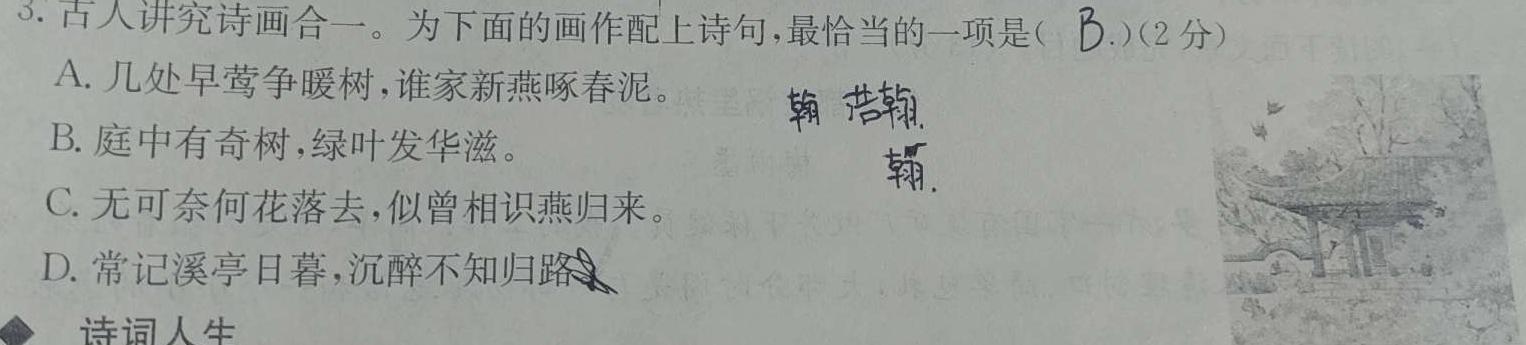 3. 古人讲究诗画合一。为下面的画作配上诗句,最恰当的一项是( B. )(2分)
A. 几处早莺争暖树,谁家新燕啄春泥。
翰 浩翰.
B. 庭中有奇树,绿叶发华滋。
翰.
C. 无可奈何花落去,似曾相识燕归来。
D. 常记溪亭日暮,沉醉不知归路
◆ 诗词人生